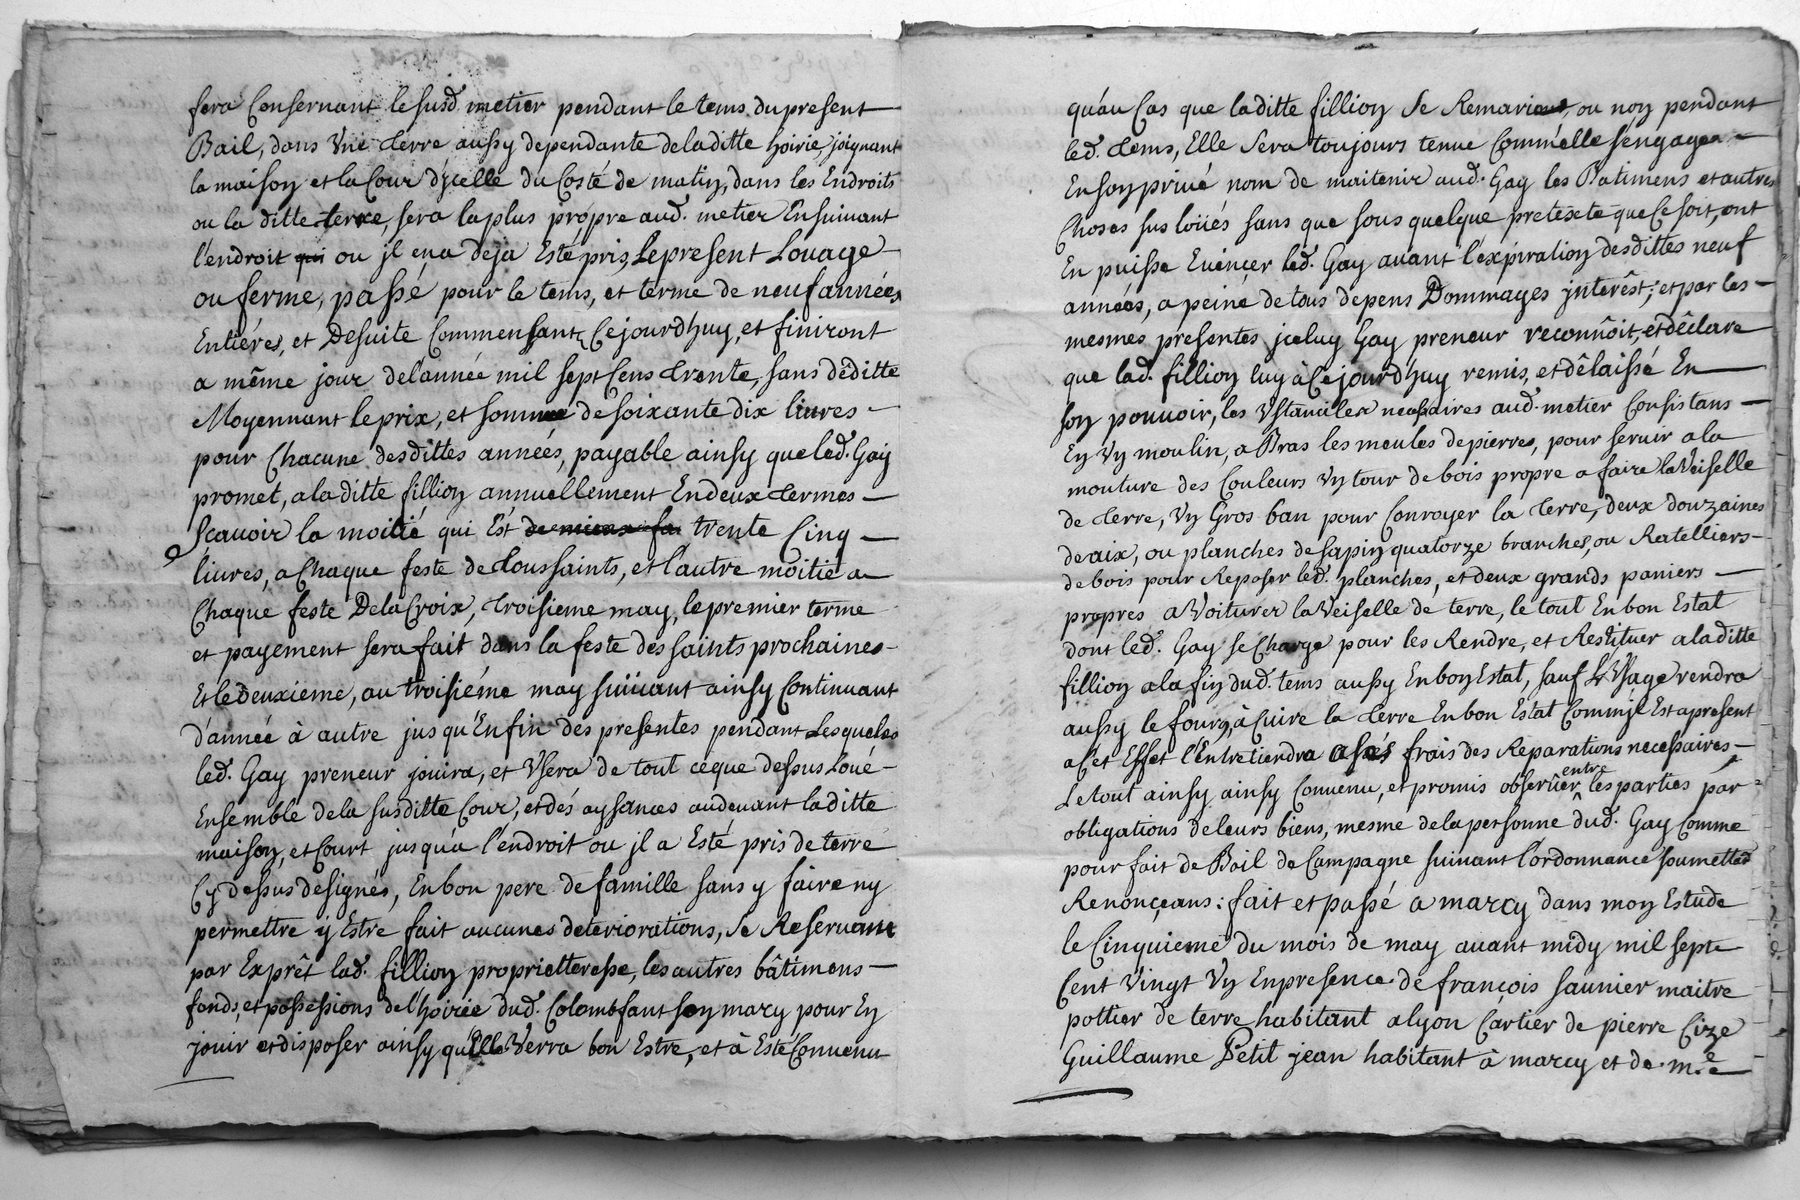 sera Consernant le susd. metier pendant le tems du present
Bail, dans Une terre aussy dependante de la ditte hoirie, joignant
la maison et la Cour d'jcelle du Costé de matin, dans les Endroits
ou la ditte terre, sera la plus propre aud. metier En suivant
l'endroit qui ou jl en a deja Esté pris, Le present Louage
ou ferme, passé pour le tems, et terme de neuf années
Entiéres, et De suite Commensants Ce jourd'huy, et finiront
a même jour de l'année mil sept Cens trente, sans déditte
Moyennant le prix, et somme de soixante dix livres
pour Chacune desdittes années, payable ainsy que led. Gay
promet, a la ditte fillion annuellement En deux termes
Scavoir la moitié qui Est trente Cinq
livres, a Chaque feste de toussaints, et l'autre moitié a
Chaque feste De la Croix, troisieme may, le premier terme
et payement sera fait dans la feste des saints prochaines
Et le deuxieme, au troisiéme may suivant ainsy Continuant
d'année à autre jusqu'En fin des presentes pendant Lesqueles
led. Gay preneur jouira, et Usera de tout ce que dessus Loué
Ensemble de la susditte Cour, et dés aysances au devant la ditte
maison, et Court jusqu'a l'endroit ou jl a Esté pris de terre
Cy dessus designés, En bon pere de famille sans y faire ny
permettre y Estre fait aucunes deteriorations, Se Reservant
par Exprêt lad. fillion proprietteresse, les autres bâtimens
fonds, et possessions de l'hoirie dud. Colombfant son mary pour En
jouir et disposer ainsy qu'Elle Verra bon Estre, et à Esté Convenu
qu'au Cas que la ditte fillion Se Remariant, ou non pendant
led. tems, Elle Sera toujours tenue Comm'elle s'engage
En son privé nom de maitenir aud. Gay les Batimens et autres
Choses sus loüés sans que sous quelque pretexte que Ce soit, ont
En puisse Evençer led. Gay avant l'éxpiration desdittes neuf
années, a peine de tous depens Dommages jnterêst; et par les
mesmes presentes jceluy Gay preneur reconnôit, et dêclare
que lad. fillion luy à Ce jourd'huy remis, et dêlaissé En
son pouvoir, les Ustanciles necessaires aud. metier Consistans
En Un moulin, a Bras les meules de pierres, pour servir a la
mouture des Couleurs Un tour de bois propre a faire la Veiselle
de terre, Un Gros ban pour Conroyer la terre, deux douzaines
de aix, ou planches de sapin quatorze branches, ou Ratelliers
de bois pour Reposer led. planches, et deux grands paniers
propres a Voiturer la Veiselle de terre, le tout En bon Estat
dont led. Gay se Charge pour les Rendre, et Restituer a la ditte
fillion a la fin dud. tems aussy En bon Estat, sauf L'Usage rendra
aussy le fourg, à Cuire la terre En bon Estat Comm'jl Est apresent
a Cet Effet l'Entretiendra a ses frais des Reparations necessaires
Le tout ainsy ainsy Convenu, et promis observêr entre les parties par
obligations de leurs biens, mesme de la personne dud. Gay Comme
pour fait de Bail de Campagne suivant l'ordonnance soumettes
Renonçeans: fait et passé a marcy dans mon Estude
le Cinquieme du mois de may avant midy mil sept
Cent Vingt Un En presence de françois saunier maitre
pottier de terre habitant a lyon Cartier de pierre Cize
Guillaume Petit jean habitant à marcy et de m.e